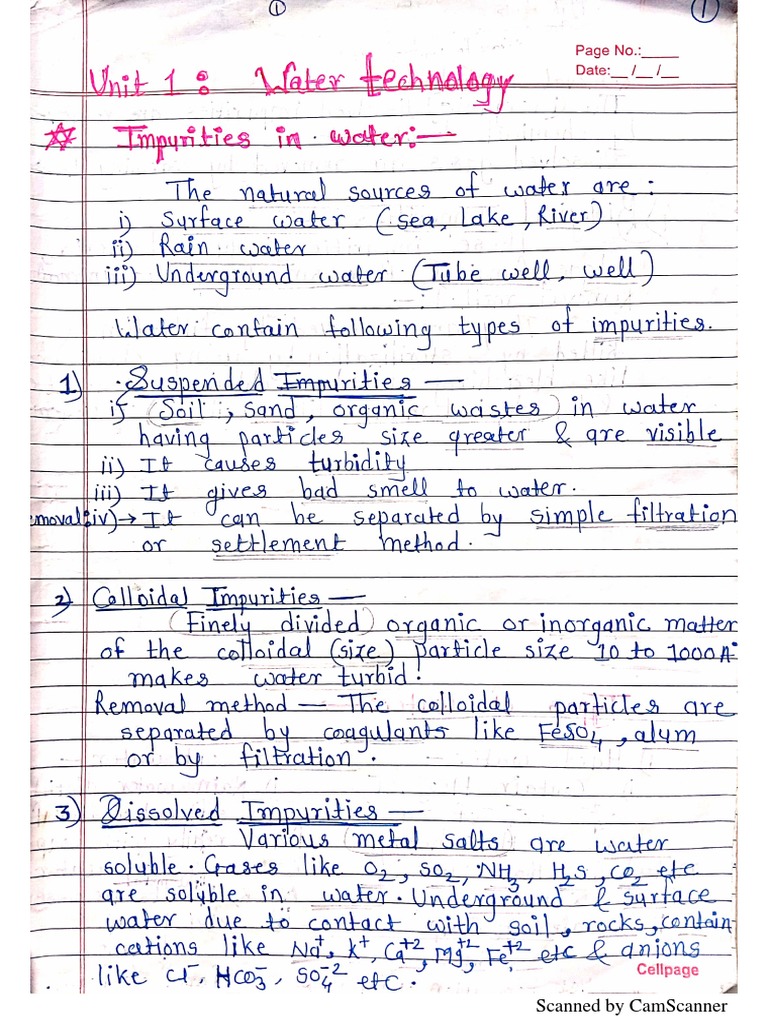 ① ①
Page No.:____
Date:__ /__ /__
Unit 1 : Water technology
☆ Impurities in water:—
The natural sources of water are :
i) Surface water (sea, Lake, River)
ii) Rain water
iii) Underground water (Tube well, well)
Water contain following types of impurities.
1) Suspended Impurities —
i) (Soil, sand, organic wastes) in water
having particles size greater & are visible
ii) It causes turbidity
iii) It gives bad smell to water.
emoval: iv) → It can be separated by simple filtration
or settlement method.
2) Colloidal Impurities —
(Finely divided) organic or inorganic matter
of the colloidal (size) particle size 10 to 1000A°
makes water turbid.
Removal method — The colloidal particles are
separated by coagulants like FeSO4, alum
or by filtration.
3) Dissolved Impurities —
Various metal salts are water
soluble. Gases like O2, SO2, NH3, H2S, CO2 etc
are soluble in water. Underground & surface
water due to contact with soil, rocks, contain
cations like Na+, K+, Ca+2, Mg+2, Fe+2 etc & anions
like Cl-, HCO3-, SO4-2 etc.
Cellpage
Scanned by CamScanner